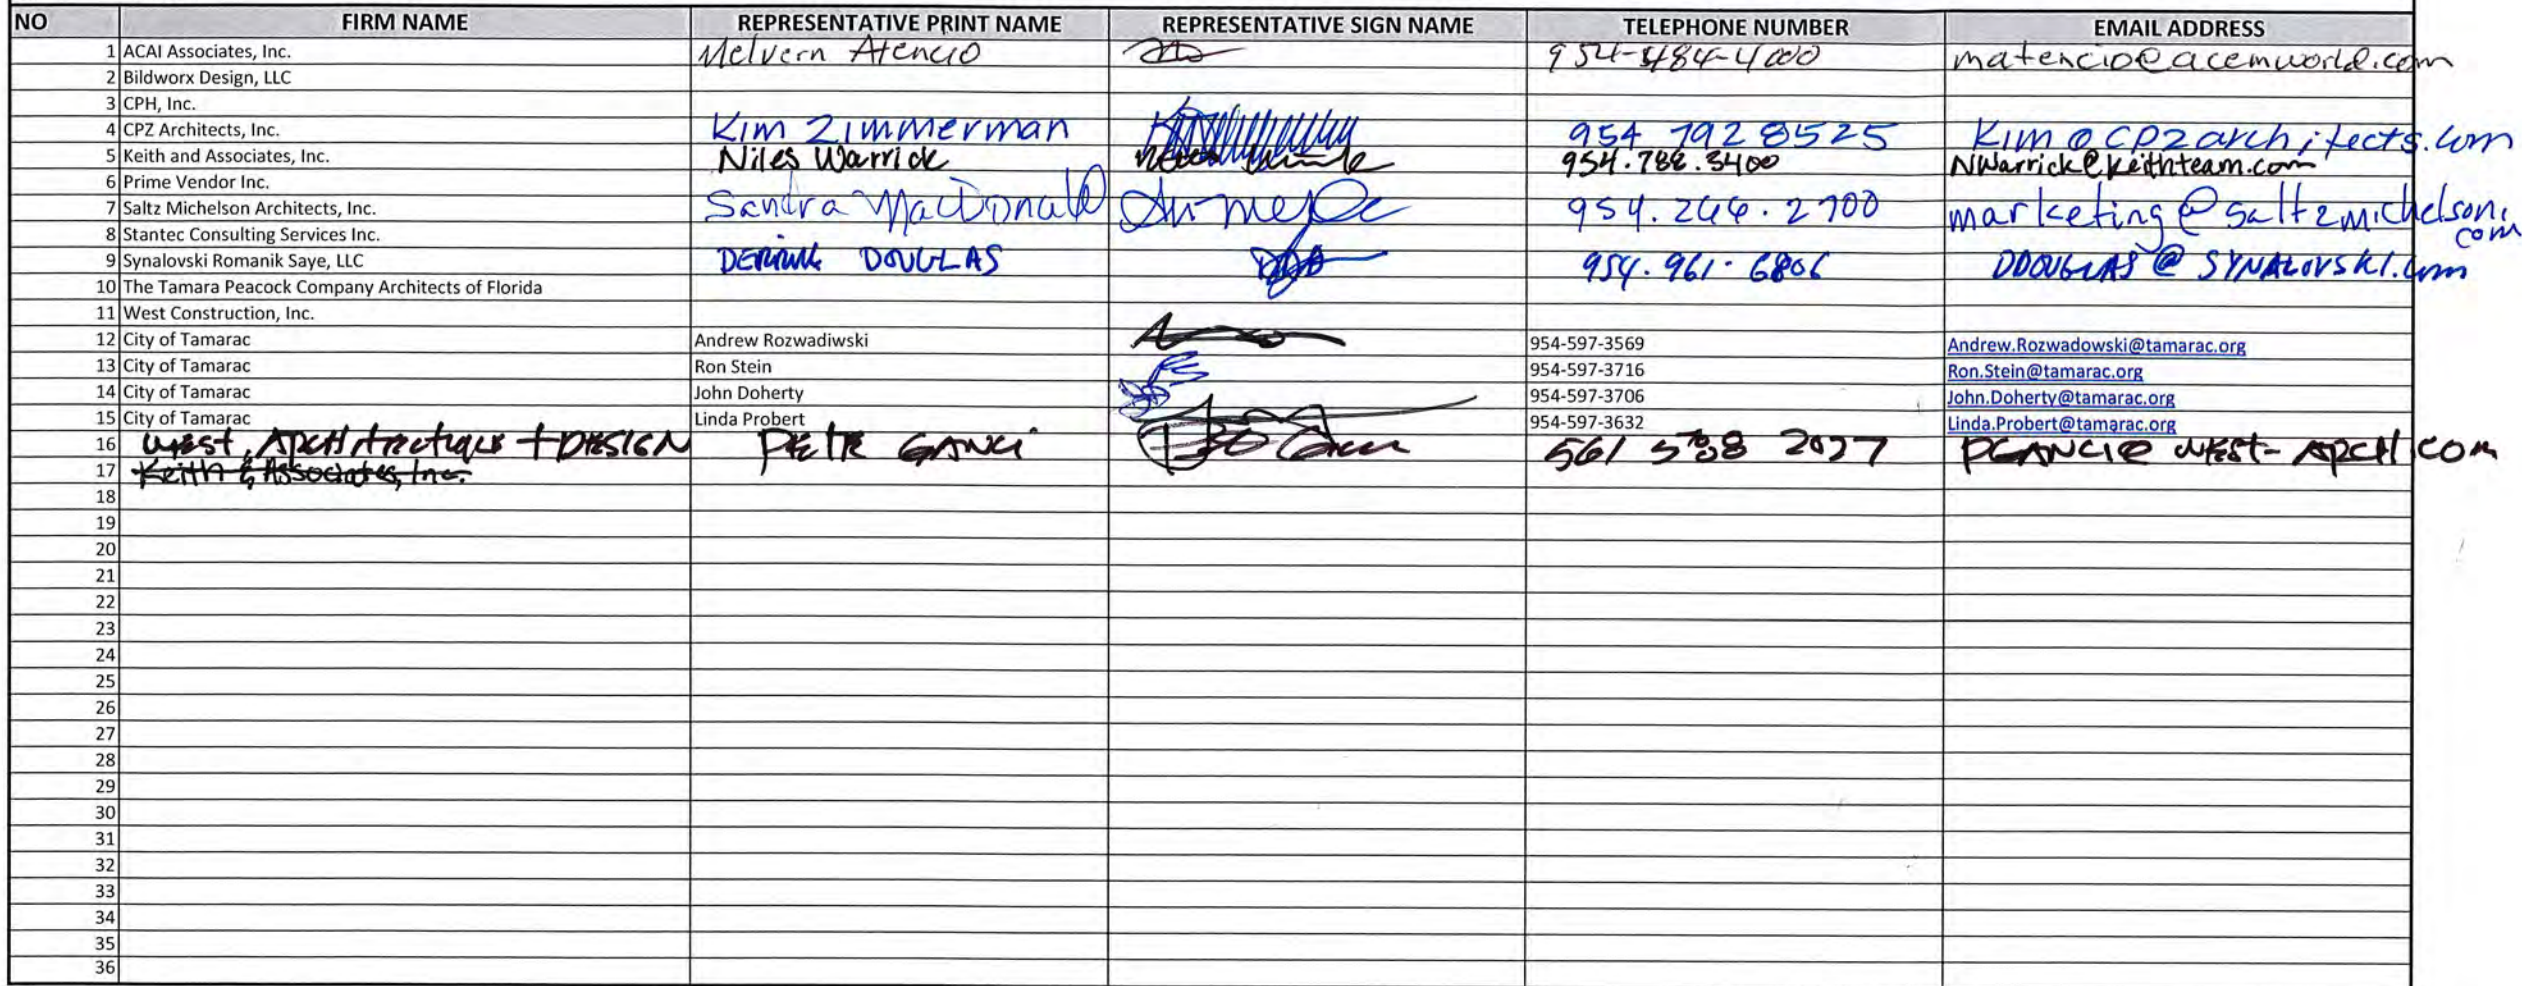 NO FIRM NAME REPRESENTATIVE PRINT NAME REPRESENTATIVE SIGN NAME TELEPHONE NUMBER EMAIL ADDRESS
1 ACAI Associates, Inc. Melvern Atencio 954-484-4000 matencio@acemworld.com
2 Bildworx Design, LLC
3 CPH, Inc.
4 CPZ Architects, Inc. Kim Zimmerman 954 792 8525 Kim@cpzarchitects.com
5 Keith and Associates, Inc. Niles Warrick 954.788.3400 NWarrick@keithteam.com
6 Prime Vendor Inc.
7 Saltz Michelson Architects, Inc. Sandra MacDonald 954.266.2700 marketing@saltzmichelson.
com
8 Stantec Consulting Services Inc.
9 Synalovski Romanik Saye, LLC DOUGLAS 954.961.6806 DDOUGLAS@SYNALOVSKI.com
10 The Tamara Peacock Company Architects of Florida
11 West Construction, Inc.
12 City of Tamarac Andrew Rozwadiwski 954-597-3569 Andrew.Rozwadowski@tamarac.org
13 City of Tamarac Ron Stein 954-597-3716 Ron.Stein@tamarac.org
14 City of Tamarac John Doherty 954-597-3706 John.Doherty@tamarac.org
15 City of Tamarac Linda Probert 954-597-3632 Linda.Probert@tamarac.org
16 West Architecture + DESIGN PETE GANCI 561 2027 PGANCI@WEST-ARCH.COM
17 Keith & Associates, Inc.
18
19
20
21
22
23
24
25
26
27
28
29
30
31
32
33
34
35
36